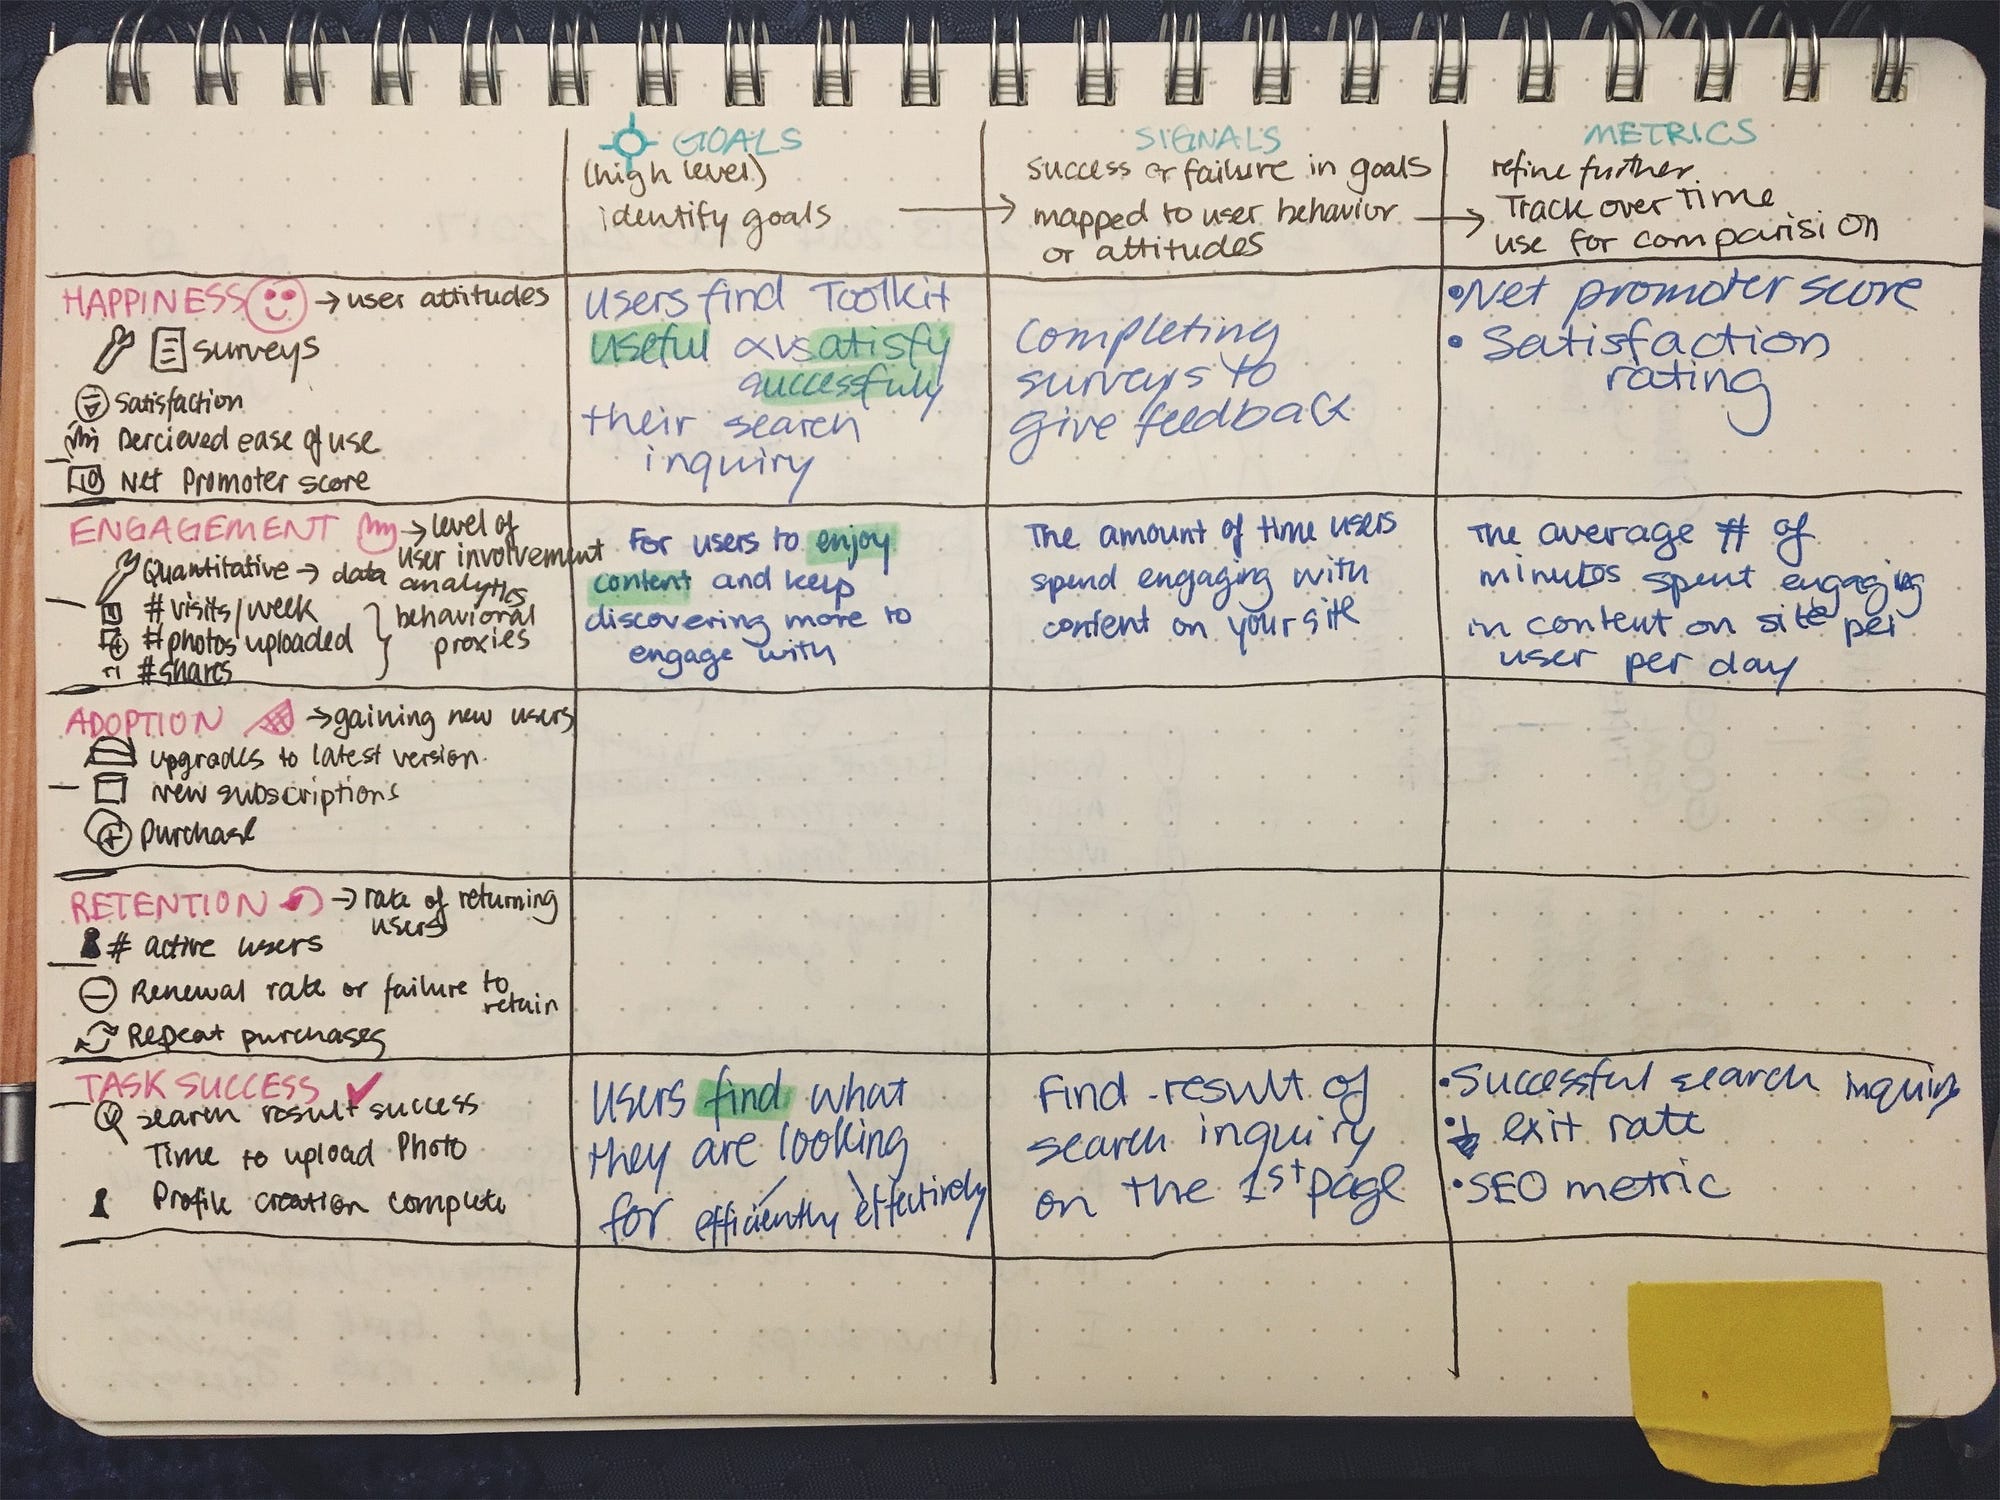 GOALS
(high level)
identify goals
SIGNALS
success or failure in goals
mapped to user behavior
or attitudes
METRICS
refine further
Track over Time
use for comparision
HAPPINESS → user attitudes
surveys
Satisfaction
Percieved ease of use
10 Net Promoter score
users find Toolkit
useful satisfy
successfully
their search
inquiry
Completing
surveys to
give feedback
• Net promoter score
• Satisfaction
rating
ENGAGEMENT → level of
user involvement
Quantitative → data analytics
# visits/week
# photos uploaded
# shares
behavioral
proxies
For users to enjoy
content and keep
discovering more to
engage with
The amount of time users
spend engaging with
content on your site
The average # of
minutes spent engaging
in content on site per
user per day
ADOPTION → gaining new users
upgrades to latest version
new subscriptions
purchase
RETENTION → rate of returning
users
# active users
Renewal rate or failure to
retain
Repeat purchases
TASK SUCCESS
search result success
Time to upload Photo
Profile creation complete
users find what
they are looking
for efficiently effectively
Find result of
search inquiry
on the 1st page
• Successful search inquiry
• ↓ exit rate
• SEO metric